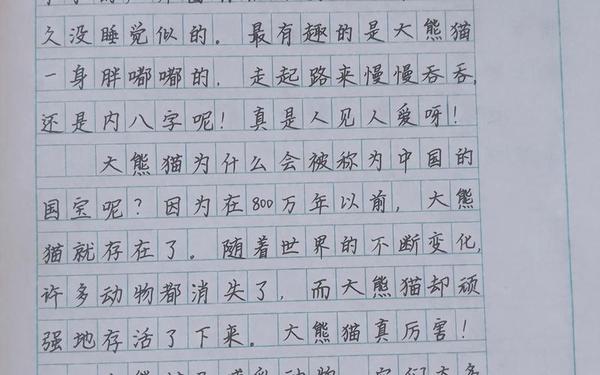 久没睡觉似的。最有趣的是大熊猫
一身胖嘟嘟的，走起路来慢慢吞吞，
还是内八字呢！真是人见人爱呀！
大熊猫为什么会被称为中国的
国宝呢？因为在800万年以前，大熊
猫就存在了。随着世界的不断变化，
许多动物都消失了，而大熊猫却顽
强地存活了下来。大熊猫真厉害！